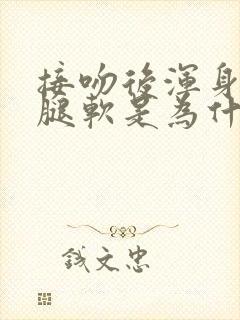 接吻後渾身
腿軟是為什
錢文忠